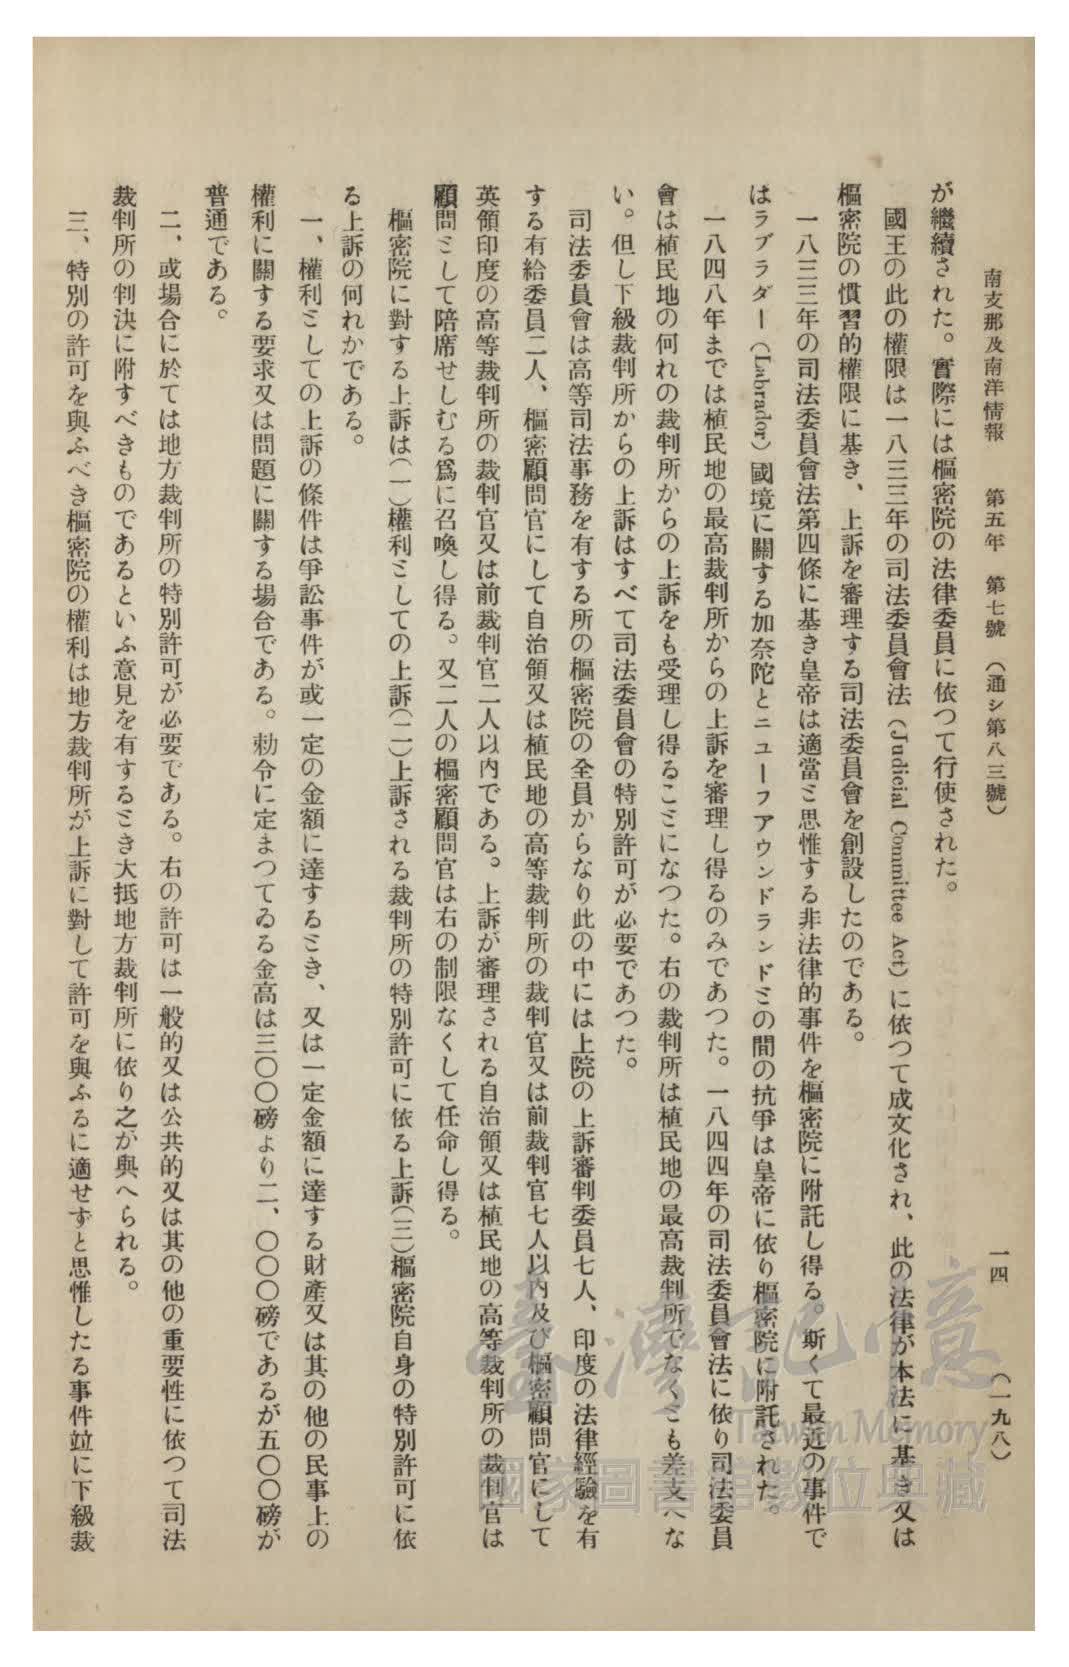 南支那及南洋情報　第五年　第七號　（通シ第八三號）　一四　（一九八）
が繼續された。實際には樞密院の法律委員に依つて行使された。
國王の此の權限は一八三三年の司法委員會法（Judicial Committee Act）に依つて成文化され、此の法律が本法に基き又は
樞密院の慣習的權限に基き、上訴を審理する司法委員會を創設したのである。
一八三三年の司法委員會法第四條に基き皇帝は適當ミ思惟する非法律的事件を樞密院に附託し得る。斯くて最近の事件で
はラブラダー（Labrador）國境に關する加奈陀とニューファウンドランドミの間の抗爭は皇帝に依り樞密院に附託された。
一八四八年までは植民地の最高裁判所からの上訴を審理し得るのみであつた。一八四四年の司法委員會法に依り司法委員
會は植民地の何れの裁判所からの上訴をも受理し得るこミになつた。右の裁判所は植民地の最高裁判所でなくミも差支へな
い。但し下級裁判所からの上訴はすべて司法委員會の特別許可が必要であつた。
司法委員會は高等司法事務を有する所の樞密院の全員からなり此の中には上院の上訴審判委員七人、印度の法律經驗を有
する有給委員二人、樞密顧問官にして自治領又は植民地の高等裁判所の裁判官又は前裁判官七人以內及び樞密顧問官にして
英領印度の高等裁判所の裁判官又は前裁判官二人以內である。上訴が審理される自治領又は植民地の高等裁判所の裁判官は
顧問ミして陪席せしむる爲に召喚し得る。又二人の樞密顧問官は右の制限なくして任命し得る。
樞密院に對する上訴は（一）權利ミしての上訴（二）上訴される裁判所の特別許可に依る上訴（三）樞密院自身の特別許可に依
る上訴の何れかである。
一、權利ミしての上訴の條件は爭訟事件が或一定の金額に達するミき、又は一定金額に達する財產又は其の他の民事上の
權利に關する要求又は問題に關する場合である。勅令に定まつてゐる金高は三〇〇磅より二、〇〇〇磅であるが五〇〇磅が
普通である。
二、或場合に於ては地方裁判所の特別許可が必要である。右の許可は一般的又は公共的又は其の他の重要性に依つて司法
裁判所の判決に附すべきものであるといふ意見を有するミき大抵地方裁判所に依り之が與へられる。
三、特別の許可を與ふべき樞密院の權利は地方裁判所が上訴に對して許可を與ふるに適せずと思惟したる事件竝に下級裁
臺灣記憶
Taiwan Memory
國家圖書館數位典藏